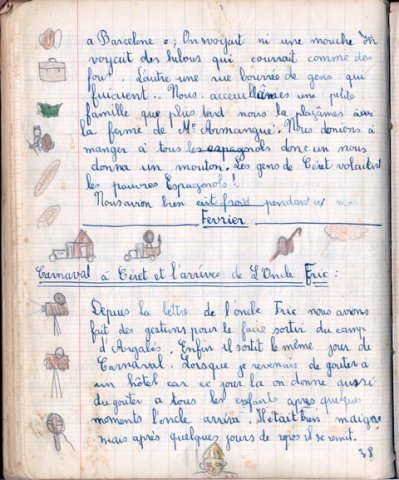 a Barcelone »; On voyait ni une mouche on
voyait des hibous qui courrait comme des
fous. L'autre une rue bourrée de gens qui
fuiraient.. Nous accueuillâmes une petite
famille que plus tard nous la plaçâmes à
la ferme de Mr Armangué. Nous donions à
manger à tous les espagnols donc un nous
donna un mouton. Les gens de Céret volaient
les pauvres Espagnols!
Nous avon bien eut froid pendant ce moi
Fevrier
Carnaval à Céret et l'arrivée de L'Oncle Fric:
Depuis la lettre de l'oncle Fric nous avions
fait des gestions pour le faire sortir du camp
d'Argelès. Enfin il sortit le même jour de
Carnaval. Lorsque je revenais de gouter a
un hôtel car ce jour la on donne aussi
du gouter a tous les enfants apres quelques
moments l'oncle arriva, Il était bien maigre
mais après quelques jours de repos il se remit.
38